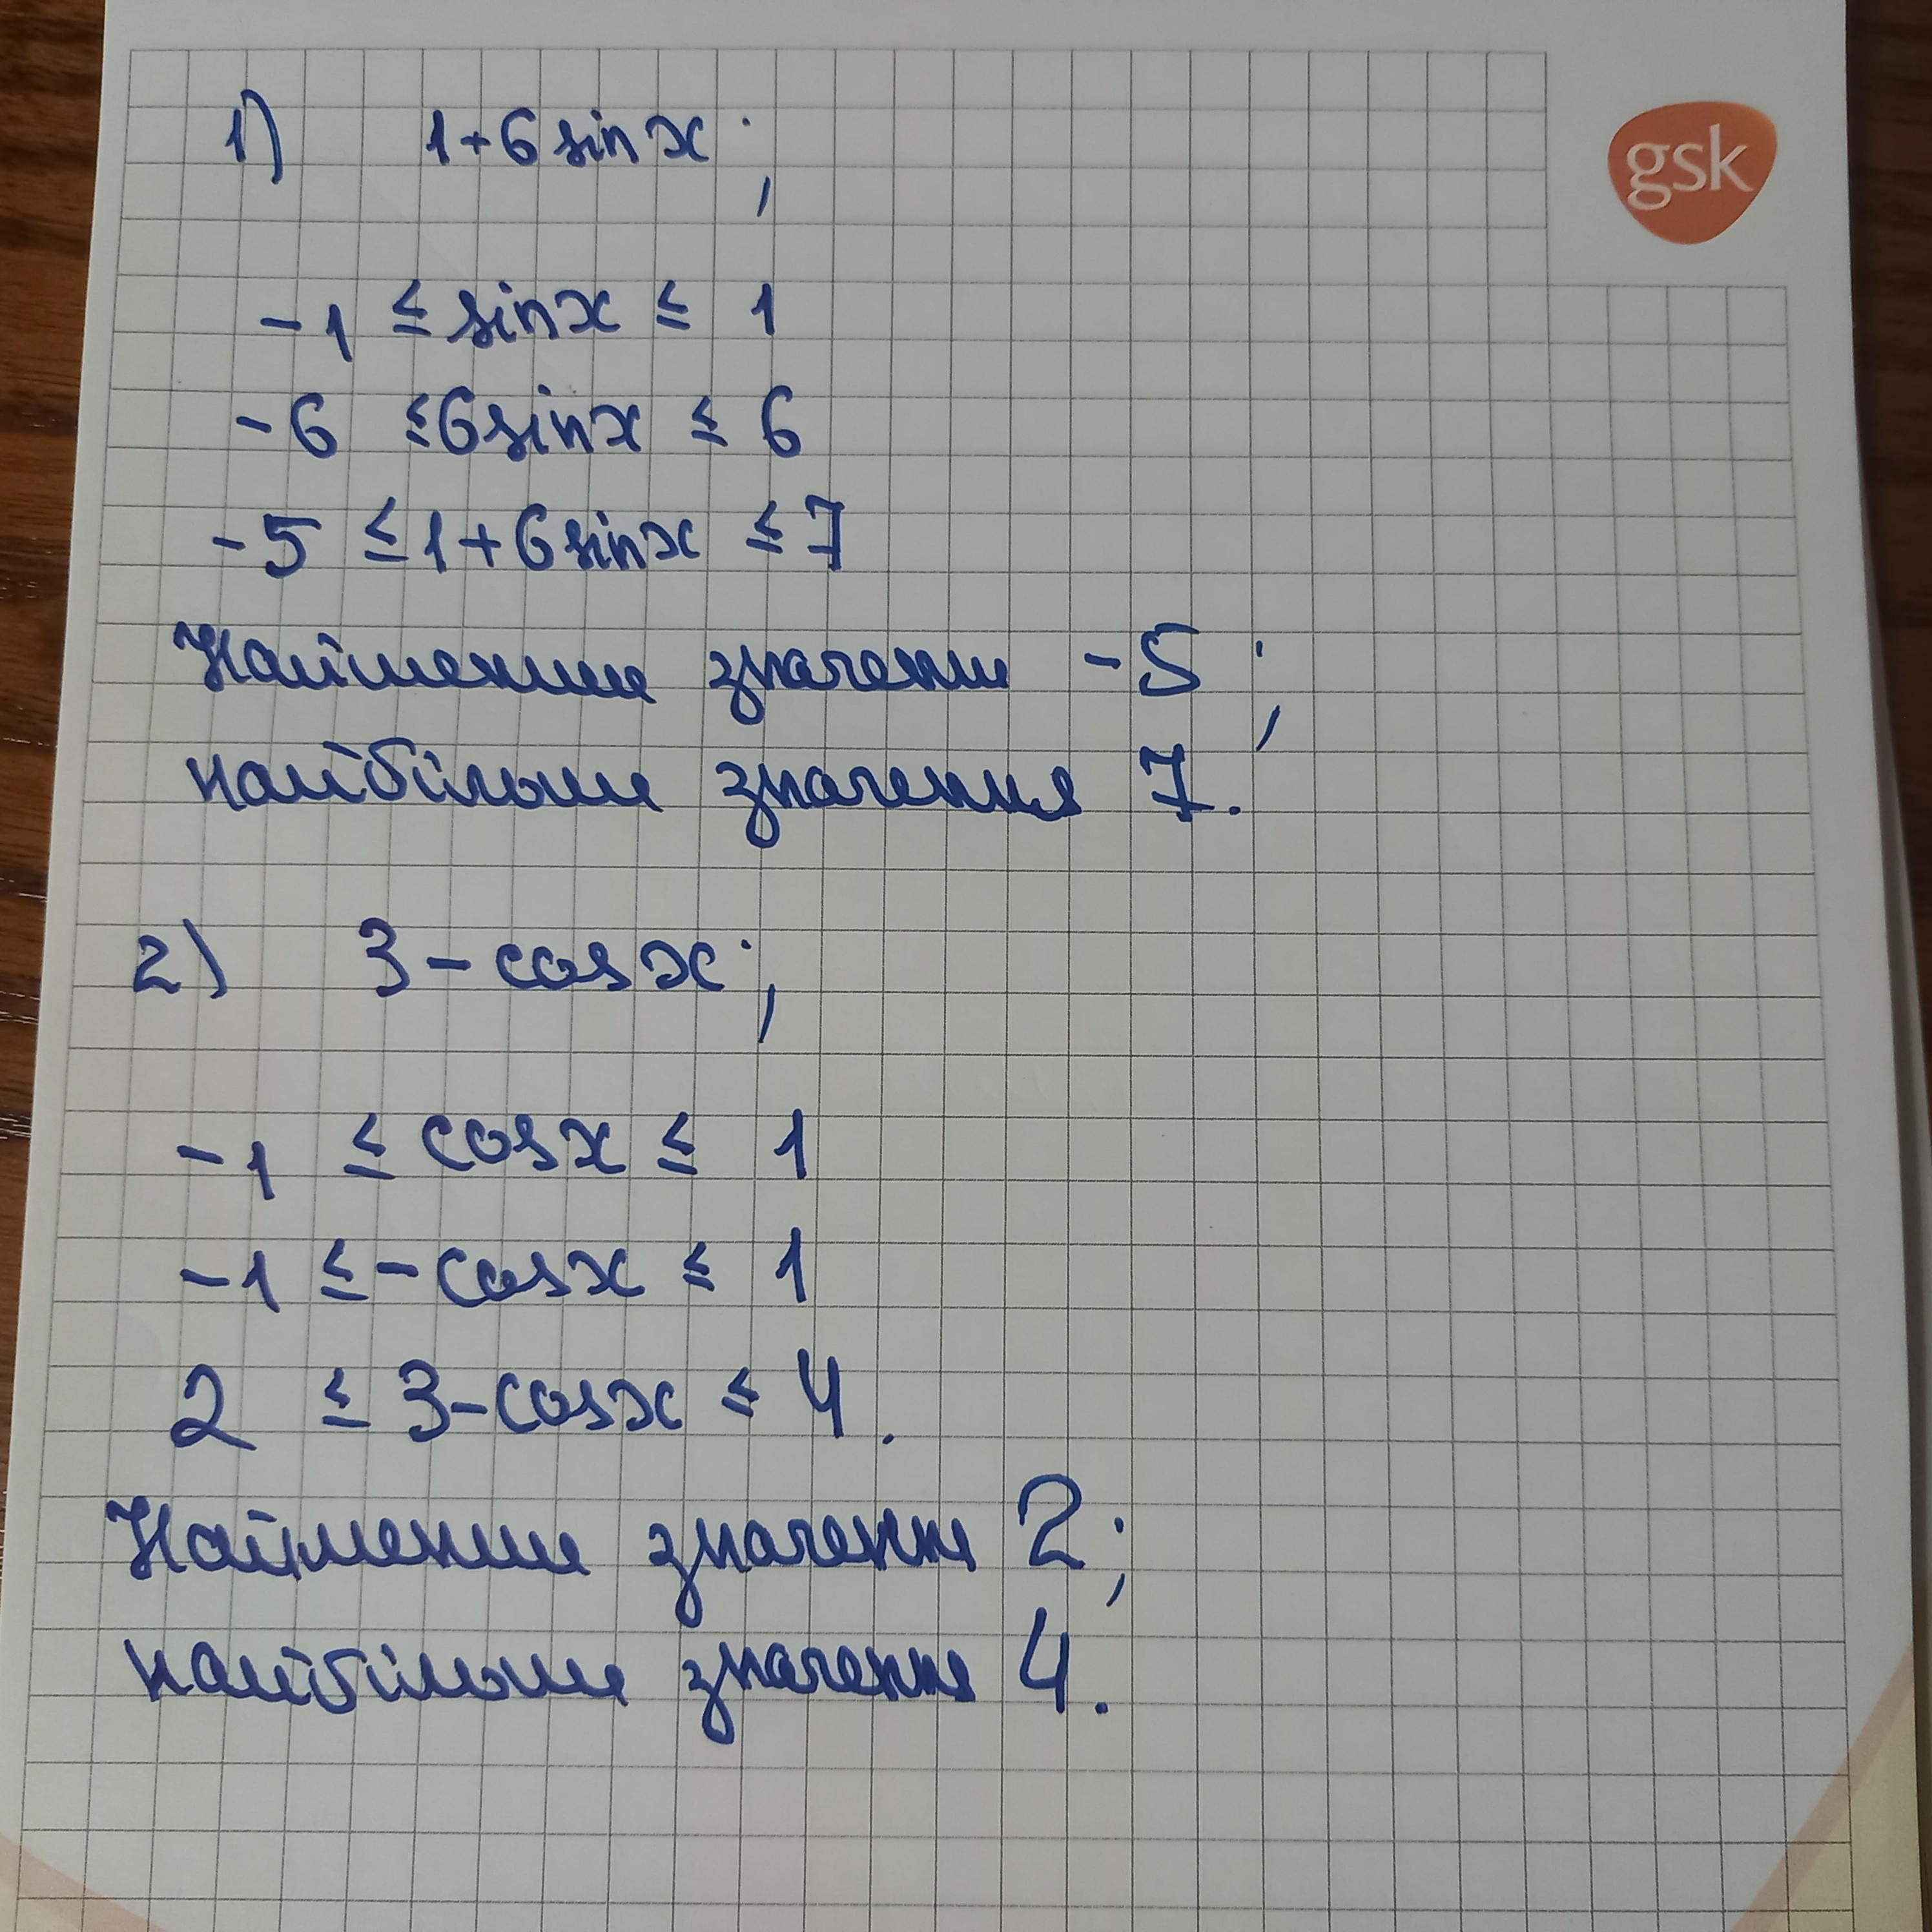 1) 1+6 sin x;
gsk
-1 ≤ sin x ≤ 1
-6 ≤ 6 sin x ≤ 6
-5 ≤ 1+6 sin x ≤ 7
Найменше значення -5;
найбільше значення 7.
2) 3 - cos x;
-1 ≤ cos x ≤ 1
-1 ≤ - cos x ≤ 1
2 ≤ 3 - cos x ≤ 4.
Найменше значення 2;
найбільше значення 4.